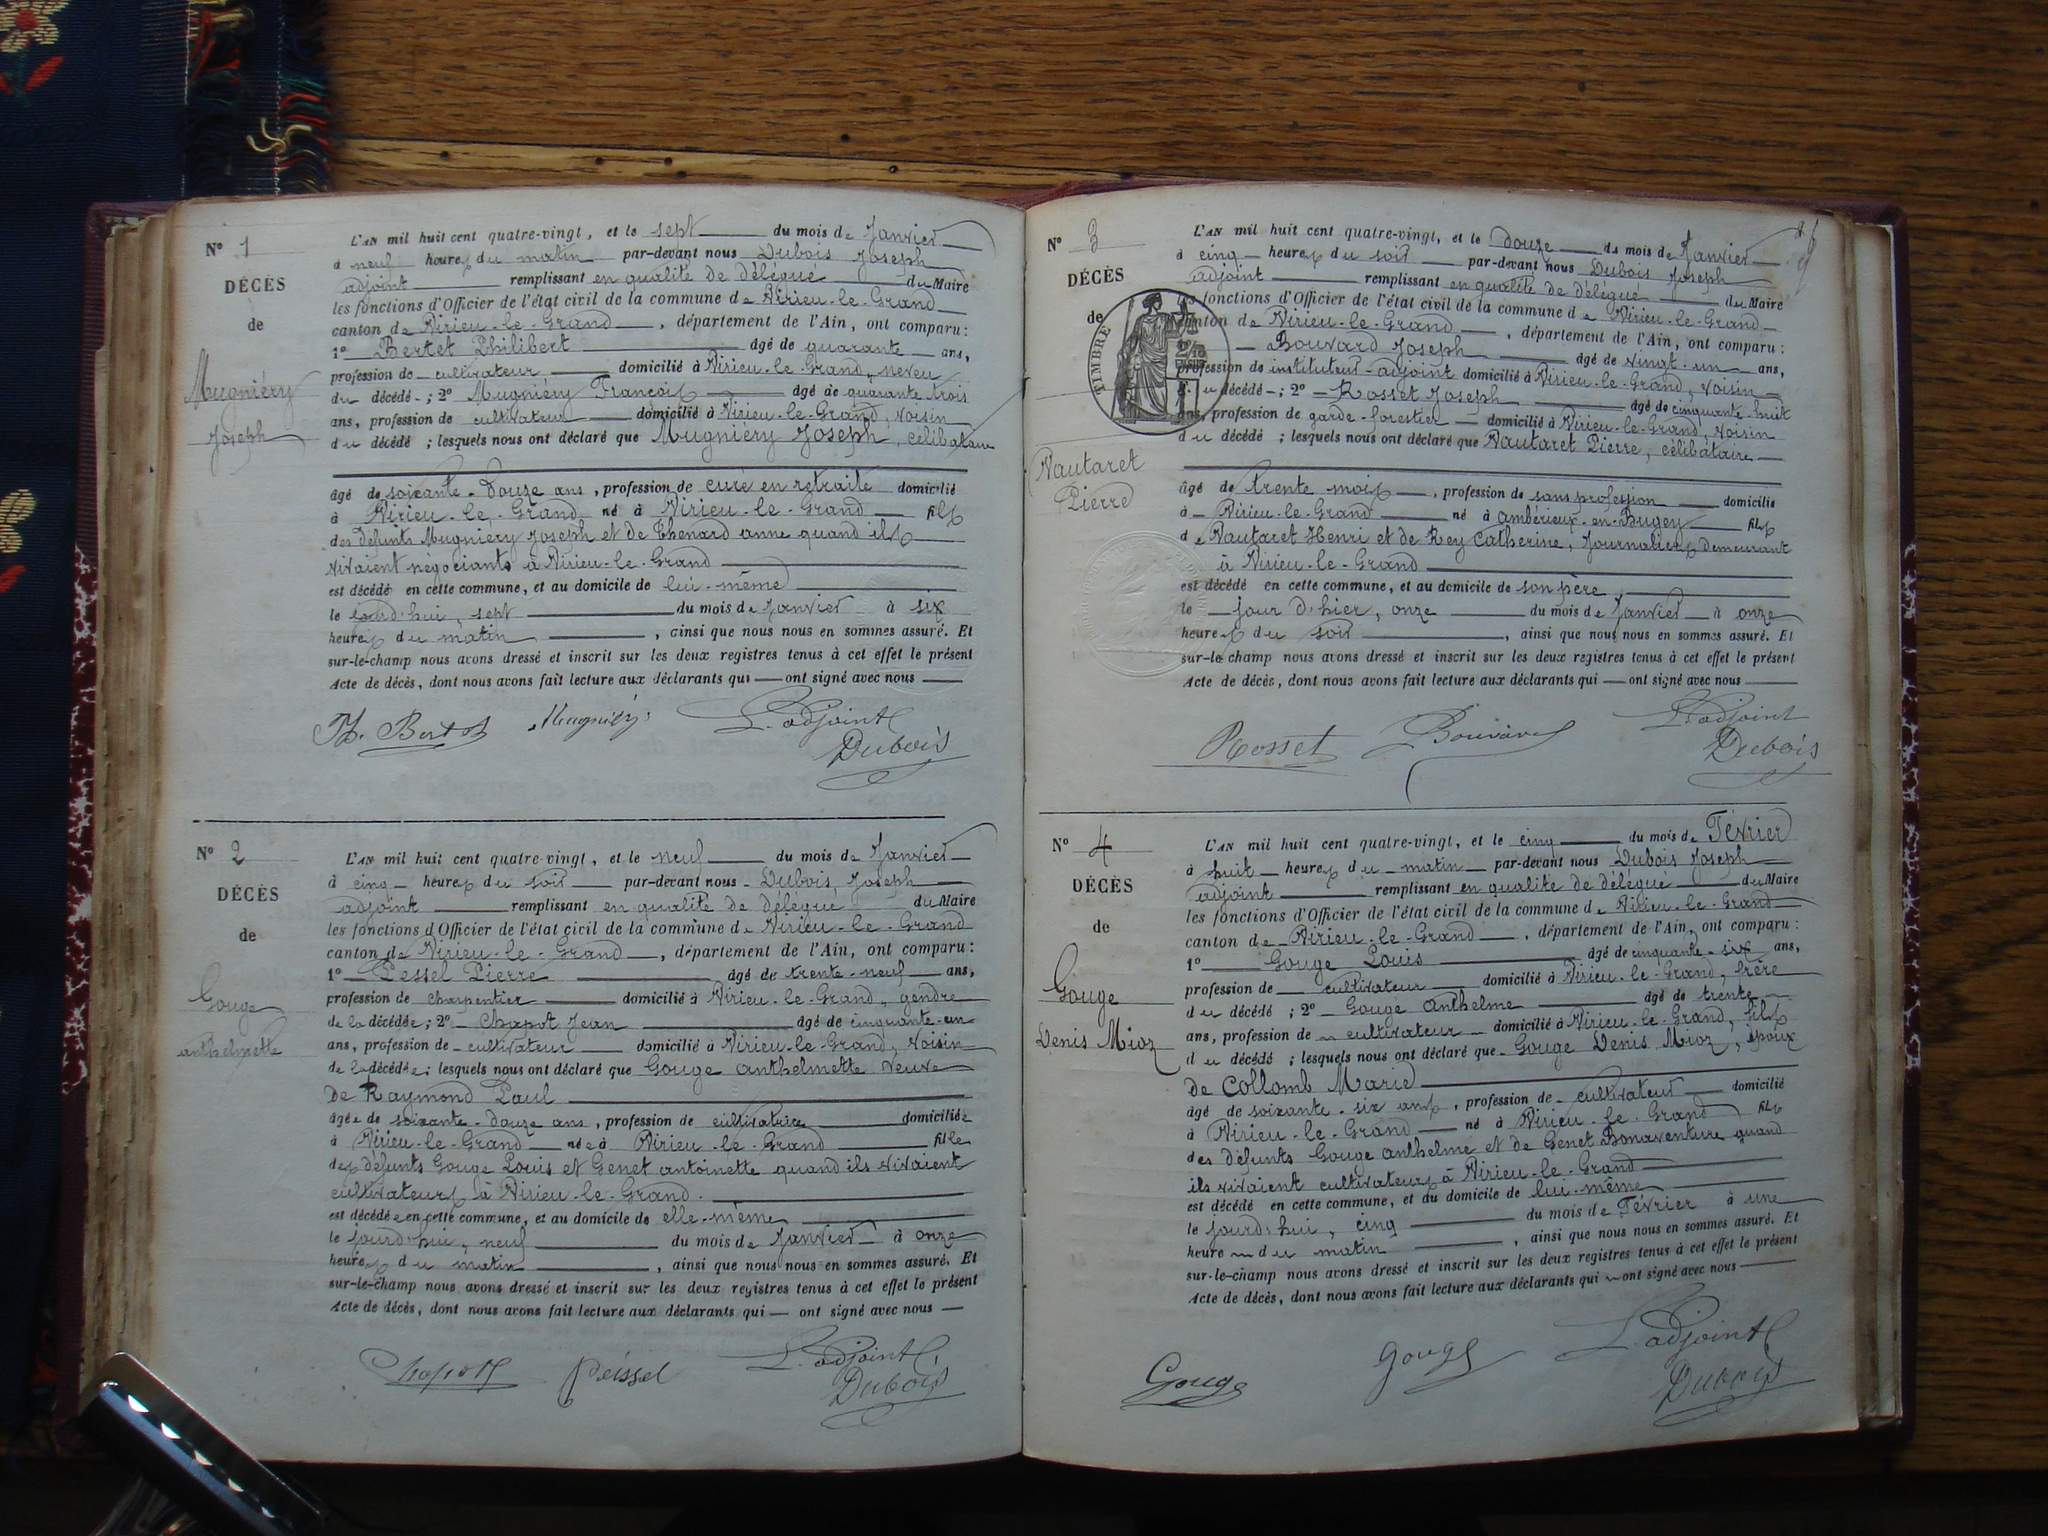 N° 1
DÉCÈS
de
Mugniéry
Joseph
L'AN mil huit cent quatre-vingt, et le sept du mois de Janvier
à neuf heures du matin par-devant nous Dubois Joseph
adjoint remplissant en qualité de délégué du Maire
les fonctions d'Officier de l'état civil de la commune de Virieu-le-Grand
canton de Virieu-le-Grand, département de l'Ain, ont comparu :
1° Bertet Philibert âgé de quarante ans,
profession de cultivateur domicilié à Virieu-le-Grand, neveu
du décédé ; 2° Mugniéry François âgé de quarante trois
ans, profession de cultivateur domicilié à Virieu-le-Grand, voisin
du décédé ; lesquels nous ont déclaré que Mugniéry Joseph, célibataire
âgé de soixante-douze ans, profession de curé en retraite domicilié
à Virieu-le-Grand né à Virieu-le-Grand fils
des défunts Mugniéry Joseph et de Thenard anne quand ils
vivaient négociants à Virieu-le-Grand
est décédé en cette commune, et au domicile de lui-même
le jourd'hui, sept du mois de Janvier à six
heures du matin, ainsi que nous nous en sommes assuré. Et
sur-le-champ nous avons dressé et inscrit sur les deux registres tenus à cet effet le présent
Acte de décès, dont nous avons fait lecture aux déclarants qui ont signé avec nous
Ph. Bertet Mugniéry L'adjoint
Dubois
N° 2
DÉCÈS
de
Gouge
anthelmette
L'AN mil huit cent quatre-vingt, et le neuf du mois de Janvier
à cinq heures du soir par-devant nous Dubois Joseph
adjoint remplissant en qualité de délégué du Maire
les fonctions d'Officier de l'état civil de la commune de Virieu-le-Grand
canton de Virieu-le-Grand, département de l'Ain, ont comparu :
1° Pessel Pierre âgé de trente-neuf ans,
profession de charpentier domicilié à Virieu-le-Grand, gendre
de la décédée ; 2° Chapot Jean âgé de cinquante-un
ans, profession de cultivateur domicilié à Virieu-le-Grand, voisin
de la décédée ; lesquels nous ont déclaré que Gouge anthelmette veuve
de Raymond Paul
âgée de soixante-douze ans, profession de cultivatrice domiciliée
à Virieu-le-Grand née à Virieu-le-Grand fille
des défunts Gouge Louis et Genet antoinette quand ils vivaient
cultivateurs à Virieu-le-Grand.
est décédée en cette commune, et au domicile de elle-même
le jourd'hui, neuf du mois de Janvier à onze
heures du matin, ainsi que nous nous en sommes assuré. Et
sur-le-champ nous avons dressé et inscrit sur les deux registres tenus à cet effet le présent
Acte de décès, dont nous avons fait lecture aux déclarants qui ont signé avec nous
Chapot Peissel L'adjoint
Dubois
N° 3
DÉCÈS
de
TIMBRE
Vautaret
Pierre
L'AN mil huit cent quatre-vingt, et le douze du mois de Janvier
à cinq heures du soir par-devant nous Dubois Joseph
adjoint remplissant en qualité de délégué du Maire
les fonctions d'Officier de l'état civil de la commune de Virieu-le-Grand
canton de Virieu-le-Grand, département de l'Ain, ont comparu :
Bouvard Joseph âgé de vingt-un ans,
profession de instituteur-adjoint domicilié à Virieu-le-Grand, voisin
du décédé ; 2° Rosset Joseph âgé de cinquante-huit
ans, profession de garde-forestier domicilié à Virieu-le-Grand, voisin
du décédé ; lesquels nous ont déclaré que Vautaret Pierre, célibataire
âgé de trente mois, profession de sans profession domicilié
à Virieu-le-Grand né à ambérieux-en-Bugey fils
de Vautaret Henri et de Rey Catherine, Journaliers demeurant
à Virieu-le-Grand
est décédé en cette commune, et au domicile de son père
le jour d'hier, onze du mois de Janvier à onze
heures du soir, ainsi que nous nous en sommes assuré. Et
sur-le-champ nous avons dressé et inscrit sur les deux registres tenus à cet effet le présent
Acte de décès, dont nous avons fait lecture aux déclarants qui ont signé avec nous
Rosset Bouvard L'adjoint
Dubois
N° 4
DÉCÈS
de
Gouge
Denis Mioz
L'AN mil huit cent quatre-vingt, et le cinq du mois de Février
à huit heures du matin par-devant nous Dubois Joseph
adjoint remplissant en qualité de délégué du Maire
les fonctions d'Officier de l'état civil de la commune de Virieu-le-Grand
canton de Virieu-le-Grand, département de l'Ain, ont comparu :
1° Gouge Louis âgé de cinquante-six ans,
profession de cultivateur domicilié à Virieu-le-Grand, frère
du décédé ; 2° Gouge anthelme âgé de trente
ans, profession de cultivateur domicilié à Virieu-le-Grand, fils
du décédé ; lesquels nous ont déclaré que Gouge Denis Mioz, époux
de Collomb Marie
âgé de soixante-six ans, profession de cultivateur domicilié
à Virieu-le-Grand né à Virieu-le-Grand fils
des défunts Gouge anthelme et de Genet Bonaventure quand
ils vivaient cultivateurs à Virieu-le-Grand
est décédé en cette commune, et au domicile de lui-même
le jourd'hui, cinq du mois de Février à une
heure du matin, ainsi que nous nous en sommes assuré. Et
sur-le-champ nous avons dressé et inscrit sur les deux registres tenus à cet effet le présent
Acte de décès, dont nous avons fait lecture aux déclarants qui ont signé avec nous
Gouge Gouge L'adjoint
Dubois